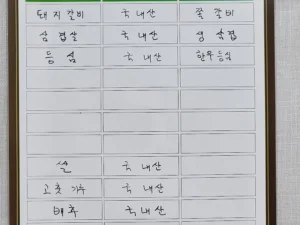 돼지갈비 국내산 꽃갈비
삼겹살 국내산 생삼겹
등심 국내산 한우등심
쌀 국내산
고춧가루 국내산
배추 국내산